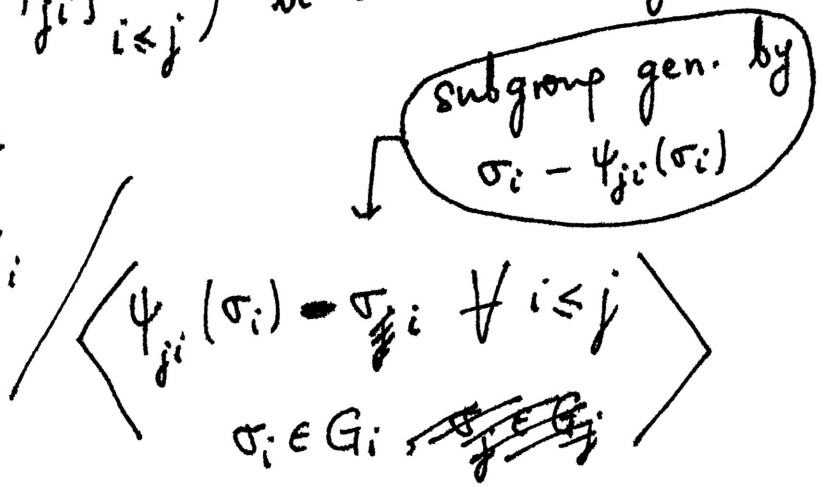 ji i≤j )
subgroup gen. by
σ_i − ψ_{ji}(σ_i)
i / ⟨ ψ_{ji}(σ_i) − σ_i ∀ i≤j
σ_i ∈ G_i , ⟩